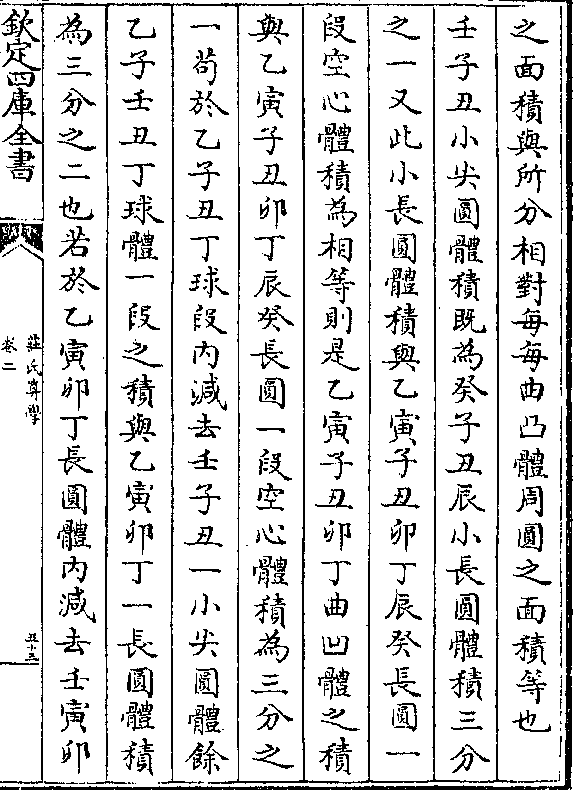 之面積與所分相對每每曲凸體周圓之面積等也
壬子丑小尖圓體積既為癸子丑辰小長圓體積三分
之一又此小長圓體積與乙寅子丑卯丁辰癸長圓一
段空心體積為相等則是乙寅子丑卯丁曲凹體之積
與乙寅子丑卯丁辰癸長圓一段空心體積為三分之
一茍於乙子丑丁球段内減去壬子丑一小尖圓體餘
乙子壬丑丁球體一段之積與乙寅卯丁一長圓體積
為三分之二也若於乙寅卯丁長圓體内減去壬寅卯
欽定四庫全書
莊氏算學
卷二
五十三